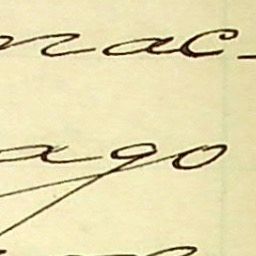 rac-
ago